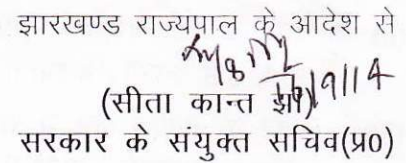 झारखण्ड राज्यपाल के आदेश से
(सीता कान्त झा)
सरकार के संयुक्त सचिव(प्र0)